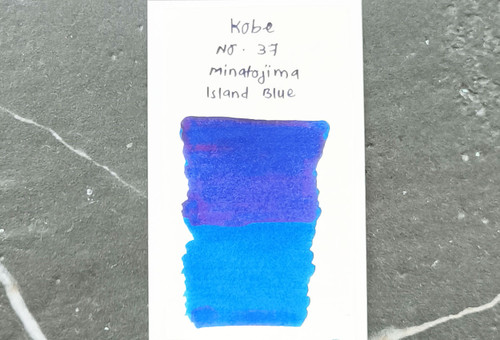 Kobe
No. 37
Minatojima
Island Blue